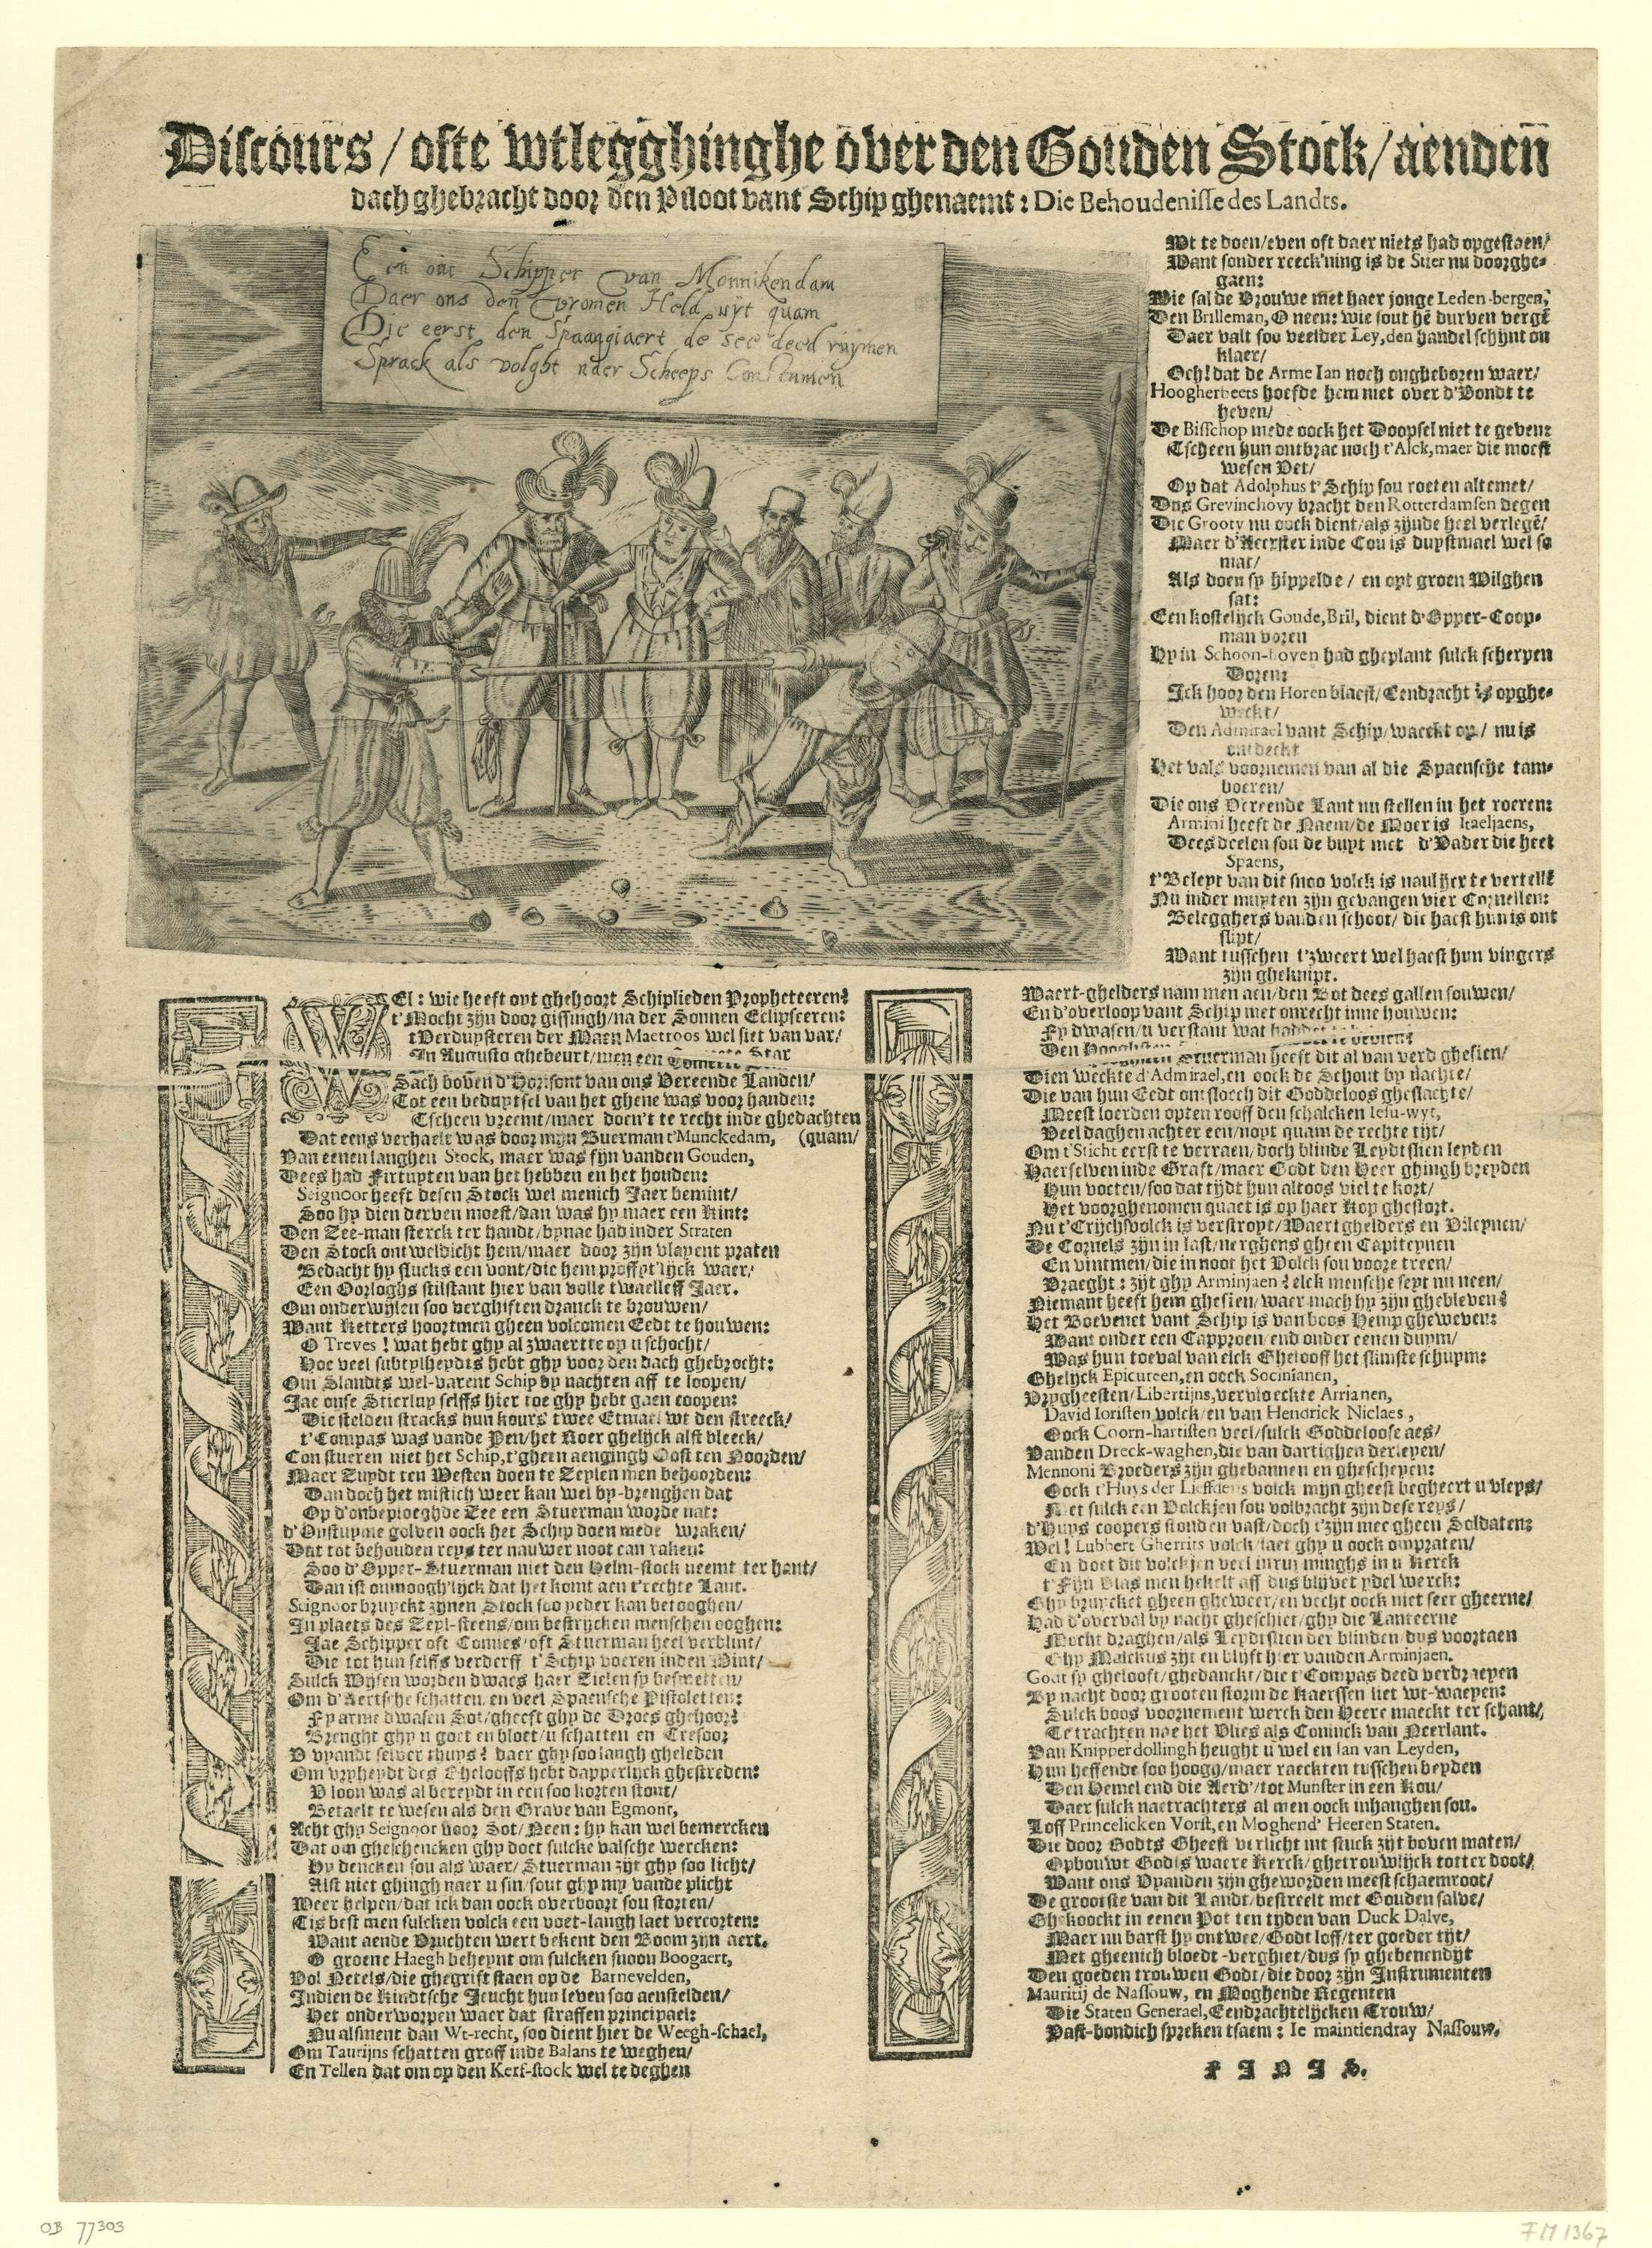 Discours/ ofte wtlegghinghe over den Gouden Stock/ aenden
dach ghebracht door den Piloot vant Schip ghenaemt: Die Behoudenisse des Landts.
Een out Schipper van Monnikendam
Daer ons den Vromen Held uyt quam
Die eerst den Spaangiaert de see deed ruymen
Sprack als volght naer Scheeps Constumen
El: wie heeft oyt ghehoort Schiplieden Propheteeren?
t'Mocht zijn door gissingh/ na der Sonnen Eclipseeren:
tVerduysteren der Maen Maetroos wel siet van var/
In Augusto ghebeurt/ men een Comeete Star
Sach boven d'Horisont van ons Vereende Landen/
Tot een beduytsel van het ghene was voor handen:
Tscheen vreemt/ maer doen't te recht inde ghedachten
Dat eens verhaelt was door mijn Buerman t'Munckedam, (quam/
Van eenen langhen Stock, maer was fijn vanden Gouden,
Dees had Firtuyten van het hebben en het houden:
Seignoor heeft desen Stock wel menich Jaer bemint/
Soo hy dien derven moest/ dan was hy maer een Kint:
Den Zee-man sterck ter handt/ bynae had inder Straten
Den Stock ontweldicht hem/ maer door zijn vleyent praten
Bedacht hy flucks een vont/ die hem proffyt'lijck waer/
Een Oorloghs stilstant hier van volle twaelleff Jaer.
Om onderwijlen soo verghiften dranck te brouwen/
Want Ketters hoortmen gheen volcomen Eedt te houwen:
O Treves! wat hebt ghy al zwaertte op u schocht/
Hoe veel subtylheydts hebt ghy voor den dach ghebrocht:
Om Slandts wel-varent Schip by nachten aff te loopen/
Jae onse Stierluy selffs hier toe ghy hebt gaen coopen:
Die stelden stracks hun kours twee Etmael wt den streeck/
t'Compas was vande Pen/ het Roer ghelijck alst bleeck/
Con stueren niet het Schip, t'gheen aengingh Oost ten Noorden/
Maer Zuydt ten Westen doen te Zeylen men behoorden:
Dan doch het mistich weer kan wel by-brenghen dat
Op d'onbeploeghde Zee een Stuerman worde nat:
d'Onstuyme golven oock het Schip doen mede wraken/
Dat tot behouden reys ter nauwer noot can raken:
Soo d'Opper-Stuerman niet den Helm-stock neemt ter hant/
Dan ist onmoogh'lijck dat het komt aen t'rechte Lant.
Seignoor bruyckt zijnen Stock soo yeder kan betooghen/
In plaets des Zeyl-steens/ om bestrycken menschen ooghen:
Jae Schipper oft Connes/ oft Stuerman heel verblint/
Die tot hun selffs verderff t'Schip voeren inden Wint/
Sulck Wysen worden dwaes haer Zielen sy besmetten/
Om d'Aertsche schatten, en veel Spaensche Pistoletten:
Fy arme dwasen Sot/ gheeft ghy de Droes ghehoor?
Brenght ghy u goet en bloet/ u schatten en Tresoor
D vyandt selver thuys? daer ghy soo langh gheleden
Om vryheydt des Gheloofs hebt dapperlyck ghestreden:
V loon was al bereydt in een soo korten stont/
Betaelt te wesen als den Grave van Egmont,
Acht ghy Seignoor voor Sot/ Neen: hy kan wel bemercken
Dat om gheschencken ghy doet sulcke valsche wercken:
Hy dencken sou als waer/ Stuerman zijt ghy soo licht/
Alst niet ghingh naer u sin/ sout ghy my vande plicht
Weer helpen/ dat ick dan oock overboort sou storten/
Tis best men sulcken volck een voet-langh laet vercorten:
Want aende Vruchten wert bekent den Boom zijn aert.
O groene Haegh beheynt om sulcken snoon Boogaert,
Vol Netels/ die ghegrift staen op de Barnevelden,
Indien de Kindtsche Jeucht hun leven soo aenstelden/
Het onderworpen waer dat straffen principael:
Nu alsment dan Wt-recht, soo dient hier de Weegh-schael,
Om Taurijns schatten groff inde Balans te weghen/
En Tellen dat om op den Kerf-stock wel te deghen
Wt te doen/ even oft daer niets had opgestaen/
Want sonder reeck'ning is de Stier nu doorghe-
gaen:
Wie sal de Vrouwe met haer jonge Leden-bergen,
Den Brilleman, O neen: wie sout hē durven vergē
Daer valt soo veelder Ley, den handel schijnt on
klaer/
Och! dat de Arme Ian noch ongheboren waer/
Hoogherbeets hoefde hem niet over d'Vondt te
heven/
De Bisschop mede oock het Doopsel niet te geven:
Tscheen hun ontbrac noch t'Alck, maer die moest
wesen Vet/
Op dat Adolphus t'Schip sou roeten altemet/
Ons Grevinchovy bracht den Rotterdamsen degen
Die Grooty nu oock dient/ als zijnde heel verlegē/
Maer d'Aecxster inde Cou is duystmael wel so
mat/
Als doen sy hippelde/ en opt groen Wilghen
sat:
Een kostelijck Goude, Bril, dient d'Opper-Coop-
man voren
Hy in Schoon-hoven had gheplant sulck scherpen
Doren:
Ick hoor den Horen blaest/ Eendracht is opghe-
weckt/
Den Admirael vant Schip/ waeckt op/ nu is
ontdeckt
Het vals voornemen van al die Spaensche tam-
boeren/
Die ons Vereende Lant nu stellen in het roeren:
Armini heeft de Naem/ de Moer is Itaeljaens,
Dees deelen sou de buyt met d'Vader die heet
Spaens,
t'Beleyt van dit snoo volck is naulijcx te vertellē
Nu inder muyten zijn gevangen vier Cornellen:
Belegghers vanden schoot/ die haest hun is ont
slipt/
Want tusschen t'zweert wel haest hun vingers
zijn gheknipt.
Waert-ghelders nam men aen/ den Bot dees gallen souwen/
En d'overloop vant Schip met onrecht inne houwen:
Fy dwasen/ u verstant wat
Den Stuerman heeft dit al van verd ghesien/
Dien weckte d'Admirael, en oock de Schout by nachte/
Die van hun Eedt ontsloech dit Goddeloos gheslachte/
Meest loerden opten rooff den schalcken Iesu-wyt,
Veel daghen achter een/ noyt quam de rechte tijt/
Om t'Sticht eerst te verraen/ doch blinde Leydtslien leyden
Haerselven inde Graft/ maer Godt den Heer ghingh breyden
Hun voeten/ soo dat tijdt hun altoos viel te kort/
Het voorghenomen quaet is op haer Kop ghestort.
Nu t'Crijchsvolck is verstroyt/ Waertghelders en Vileynen/
De Cornels zijn in last/ nerghens gheen Capiteynen
En vintmen/ die in noot het Volck sou voore treen/
Vraeght: zijt ghy Arminjaen? elck mensche seyt nu neen/
Niemant heeft hem ghesien/ waer mach hy zijn ghebleven?
Het Boevenet vant Schip is van boos Hemp gheweven:
Want onder een Capproen end onder eenen duym/
Was hun toeval van elck Ghelooff het slimste schuym:
Ghelijck Epicureen, en oock Socinianen,
Vrygheesten/ Libertijns, vervloeckte Arrianen,
David Ioristen volck/ en van Hendrick Niclaes,
Oock Coorn-hartisten veel/ sulck Goddeloose aes/
Vanden Dreck-waghen, die van dartighen derleyen/
Mennoni Broeders zijn ghebannen en ghescheyen:
Oock t'Huys der Lieffdens volck mijn gheest begheert u vleys/
Met sulck een Volckjen sou volbracht zijn dese reys/
d'Huys coopers stonden vast/ doch t'zijn mee gheen Soldaten:
Wel! Lubbert Gherrits volck/ laet ghy u oock ompraten/
En doet dit volckjen veel inruyminghs in u Kerck
t'Fijn Vlas men hekelt aff dus blijvet ydel werck:
Ghy bruycket gheen gheweer/ en vecht oock niet seer gheerne/
Had d'overval by nacht gheschiet/ ghy die Lanteerne
Mocht draghen/ als Leydtslien der blinden/ dus voortaen
Ghy Malckus zijt en blijft hier vanden Arminjaen.
Godt sy ghelooft/ ghedanckt/ die t'Compas deed verdraeyen
By nacht door grooten storm de Kaerssen liet wt-waeyen:
Sulck boos voornement werck den Heere maeckt ter schant/
Te trachten nae het Vlies als Coninck van Neerlant.
Van Knipperdollingh heught u wel en Ian van Leyden,
Hun heffende soo hoogh/ maer raeckten tusschen beyden
Den Hemel end die Aerd'/ tot Munster in een Kou/
Daer sulck naetrachters al men oock inhanghen sou.
Loff Princelicken Vorst, en Moghend' Heeren Staten.
Die door Godts Gheest verlicht int stuck zijt boven maten/
Opbouwt Godts waere Kerck/ ghetrouwlijck totter doot/
Want ons Vyanden zijn gheworden meest schaemroot/
De grootste van dit Landt/ bestreelt met Gouden salve/
Ghekoockt in eenen Pot ten tyden van Duck Dalve,
Maer nu barst hy ontwee/ Godt loff/ ter goeder tijt/
Met gheenich bloedt-verghiet/ dus sy ghebenendijt
Den goeden trouwen Godt/ die door zijn Instrumenten
Mauritij de Nassouw, en Moghende Regenten
Die Staten Generael, Eendrachtelijcken Trouw/
Vast-bondich spreken tsaem: Ie maintiendray Nassouw.
FINIS.
OB 77303
FM 1367